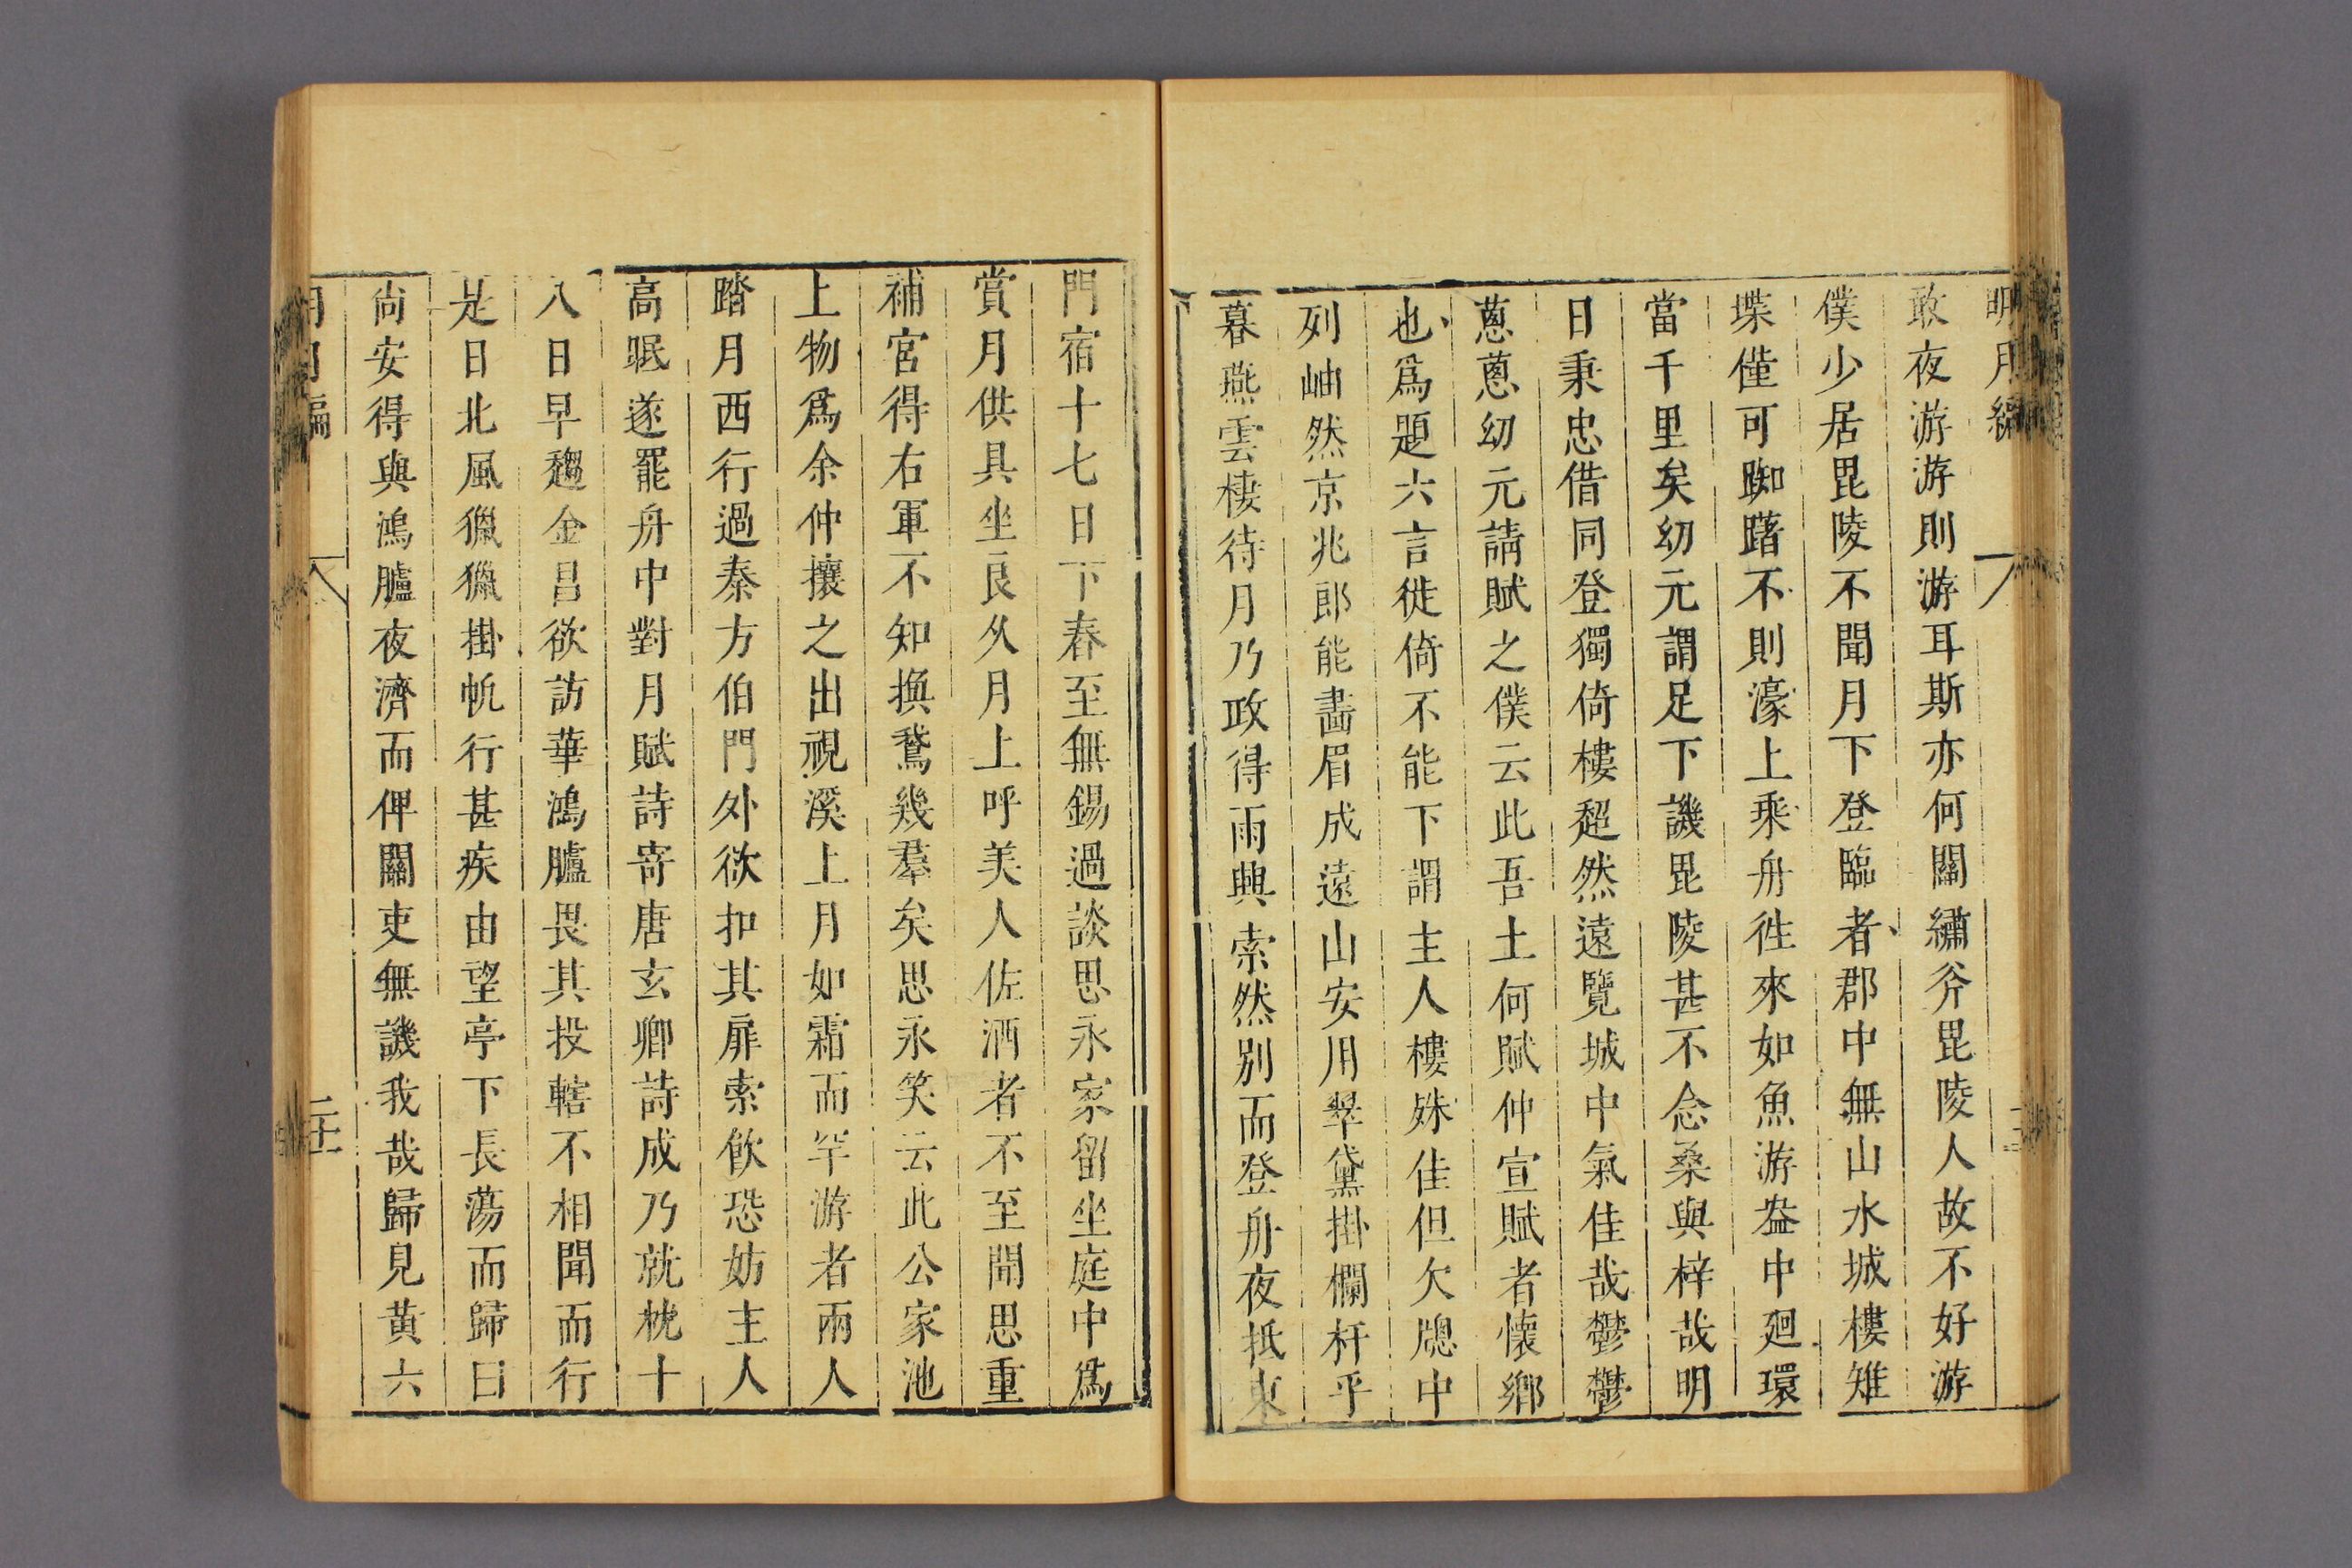 明月編
敢夜游游則游耳斯亦何關繡斧毘陵人故不好游
僕少居毘陵不聞月下登臨者郡中無山水城樓雉
堞僅可踟躇不則濠上乘舟徃來如魚游盎中廻環
當千里矣幼元謂足下譏毘陵甚不念桑與梓哉明
日秉忠借同登獨倚樓超然遠覽城中氣佳哉鬱鬱
蔥蔥幼元請賦之僕云此吾土何賦仲宣賦者懷鄉
也爲題六言徙倚不能下謂主人樓殊佳但欠牕中
列岫然京兆郎能畵眉成遠山安用翠黛掛欄杆乎
暮燕雲棲待月乃政得雨興索然別而登舟夜抵東
門宿十七日下舂至無錫過談思永家留坐庭中爲
賞月供具坐良久月上呼美人佐酒者不至聞思重
補官得右軍不知換鵞幾羣矣思永笑云此公家池
上物爲余仲攘之出視溪上月如霜而罕游者兩人
踏月西行過秦方伯門外欲扣其扉索飲恐妨主人
高眠遂罷舟中對月賦詩寄唐玄卿詩成乃就枕十
八日早趨金昌欲訪華鴻臚畏其投轄不相聞而行
是日北風獵獵掛帆行甚疾由望亭下長蕩而歸曰
尚安得與鴻臚夜濟而俾關吏無譏我哉歸見黃六
月編 二十二